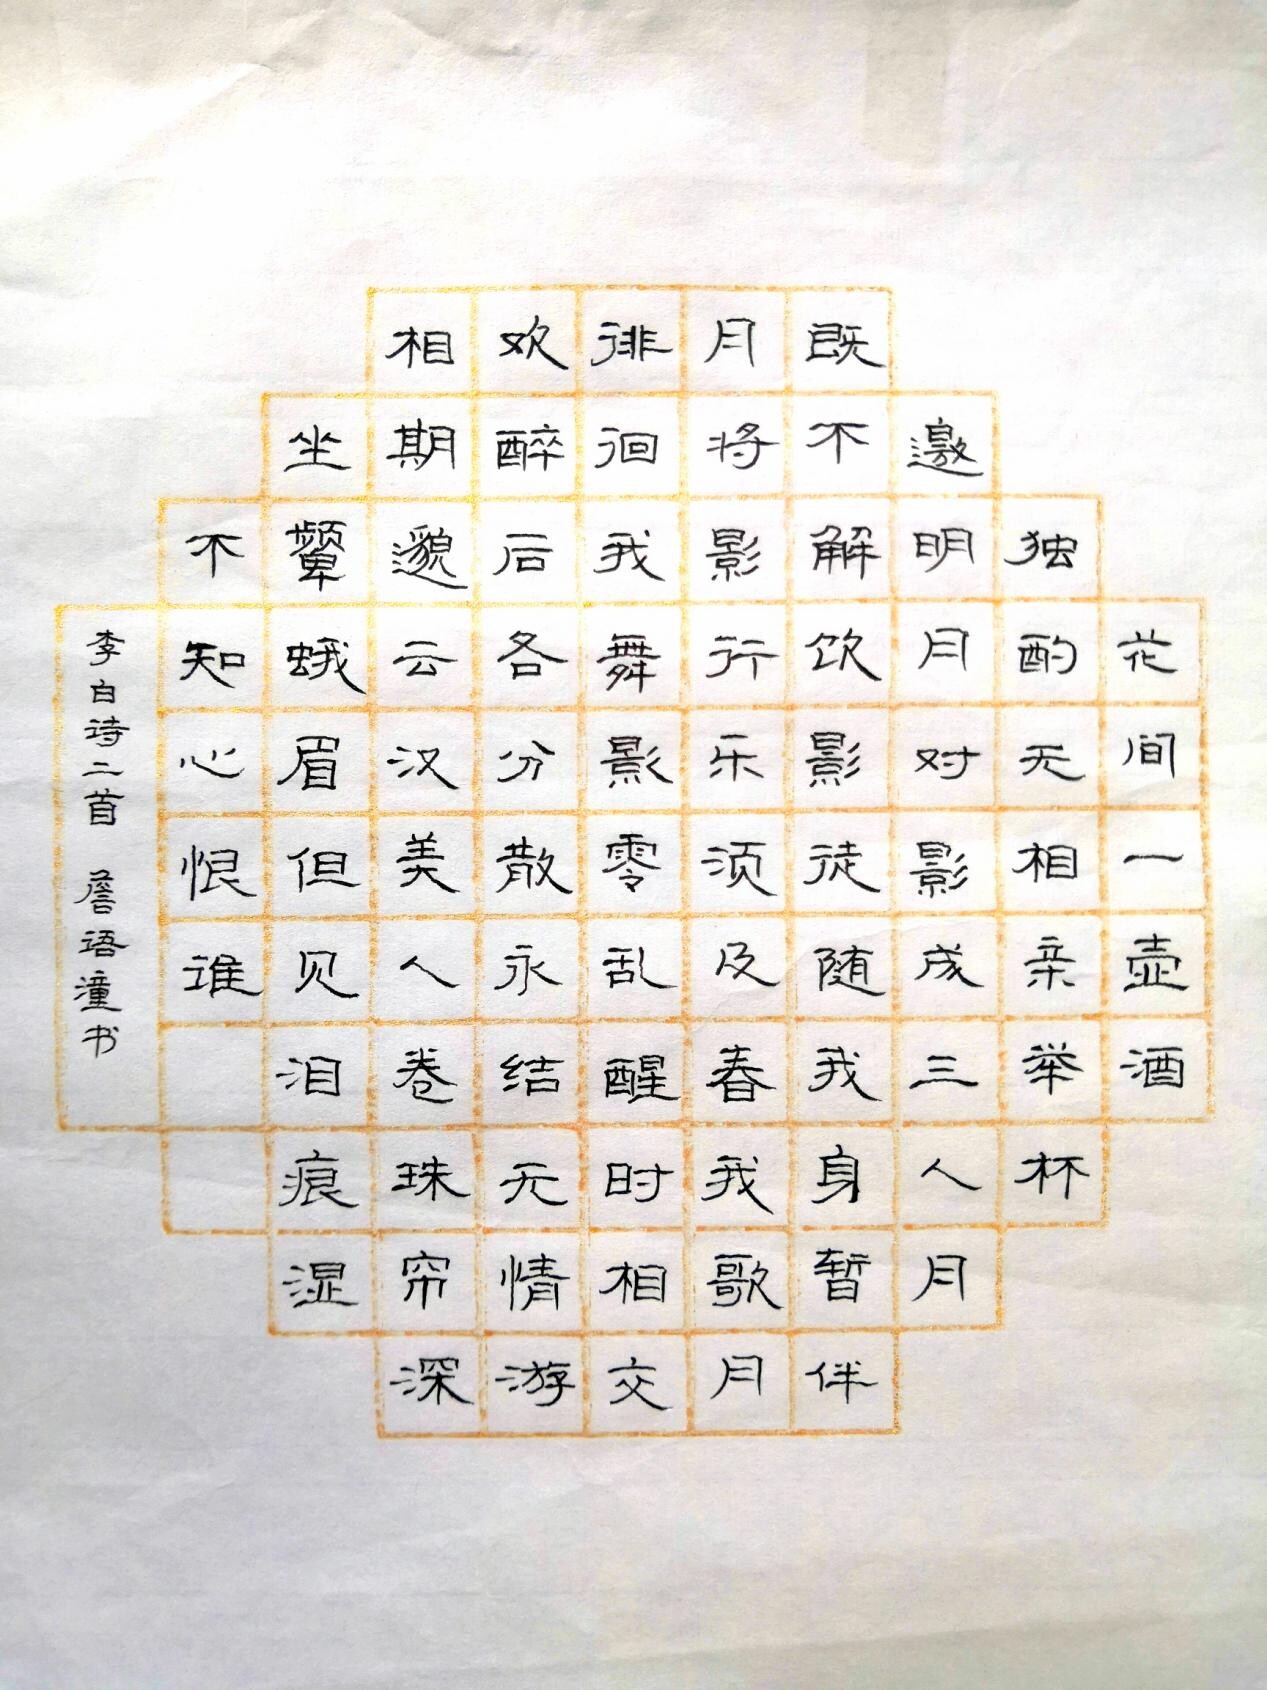 花间一壶酒
独酌无相亲举杯
邀明月对影成三人月
既不解饮影徒随我身暂伴
月将影行乐须及春我歌月
徘徊我舞影零乱醒时相交
欢醉后各分散永结无情游
相期邈云汉美人卷珠帘深
坐颦蛾眉但见泪痕湿
不知心恨谁
李白诗二首 詹语潼书